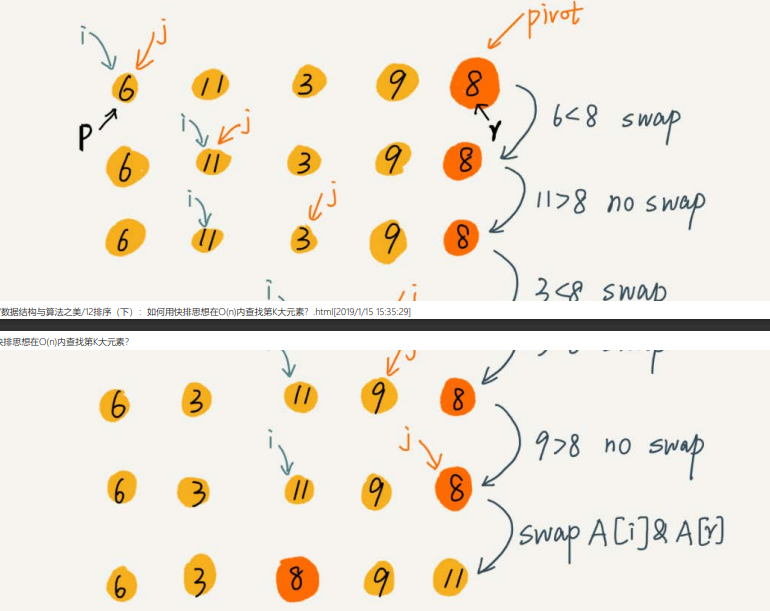 pivot
i j
6 11 3 9 8
p r
6<8 swap
i j
6 11 3 9 8
11>8 no swap
i j
6 11 3 9 8
3<8 swap
i j
数据结构与算法之美/12排序（下）：如何用快排思想在O(n)内查找第K大元素？.html[2019/1/15 15:35:29]
快排思想在O(n)内查找第K大元素？
j
6 3 11 9 8
9>8 no swap
i j
6 3 11 9 8
swap A[i]&A[r]
6 3 8 9 11